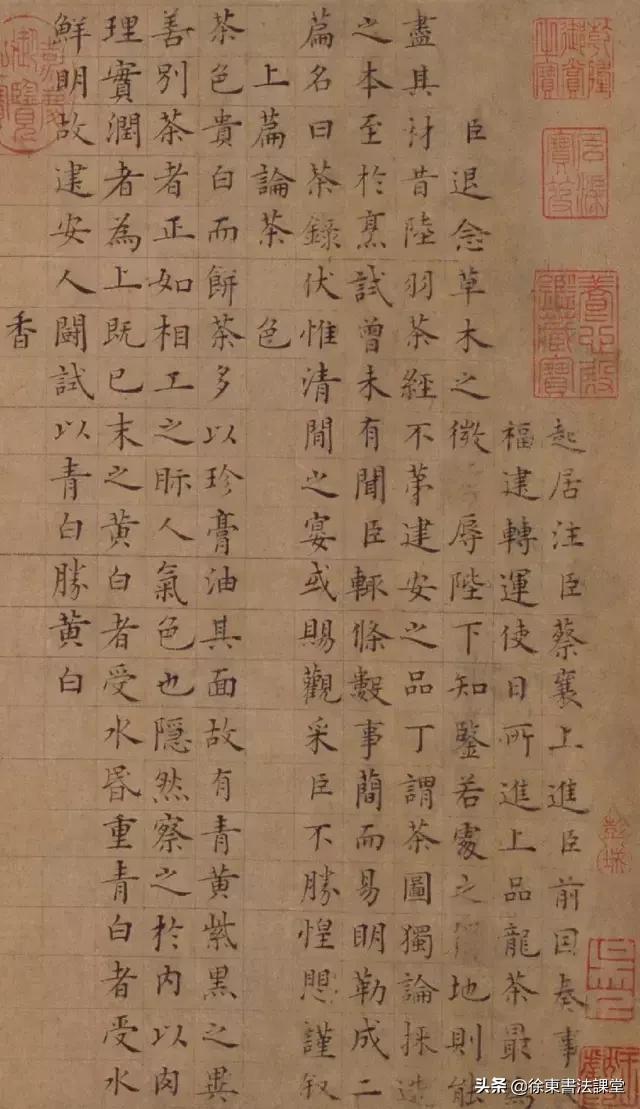 石渠寶笈
養心殿鑑藏寶
起居注臣蔡襄上進臣前因奏事
福建轉運使日所進上品龍茶最為
臣退念草木之微辱陛下知鑒若處之地則能
盡其材昔陸羽茶經不第建安之品丁謂茶圖獨論採造
之本至於烹試曾未有聞臣輒條數事簡而易明勒成二
篇名曰茶錄伏惟清閒之宴或賜觀采臣不勝惶愳謹叙
上篇論茶
色
茶色貴白而餅茶多以珍膏油其面故有青黃紫黑之異
善別茶者正如相工之眎人氣色也隱然察之於內以肉
理實潤者為上既已末之黃白者受水昏重青白者受水
鮮明故建安人鬭試以青白勝黃白
香
嘉慶御覽之寶
头条 @徐東書法課堂